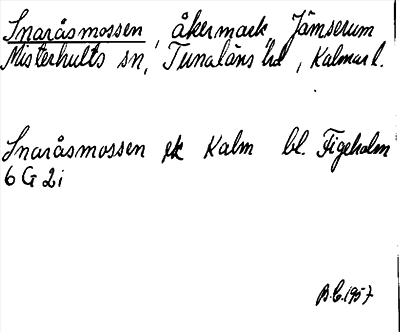 Snaråsmossen, åkermark, Jämserum
Misterhults sn, Tunaläns hd, Kalmar l.
Snaråsmossen ek Kalm bl. Figeholm
6 G 2 i
B.C. 1957